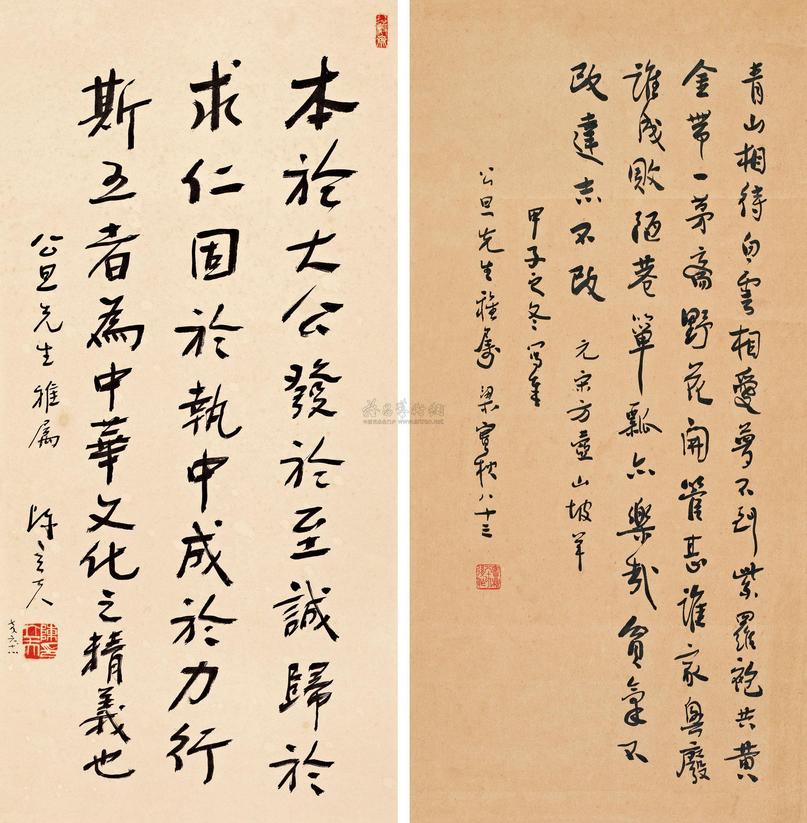 本於大公發於至誠歸於
求仁固於執中成於力行
斯五者為中華文化之精義也
公旦先生雅属
陳立夫
青山相待白雲相愛夢不到紫羅袍共黃
金帶一茅齋野花開管甚誰家興廢
誰成敗陋巷簞瓢亦樂哉貧氣不
改達志不改 元宋方壺山坡羊
甲子之冬寫奉
公旦先生雅屬 梁實秋八十三